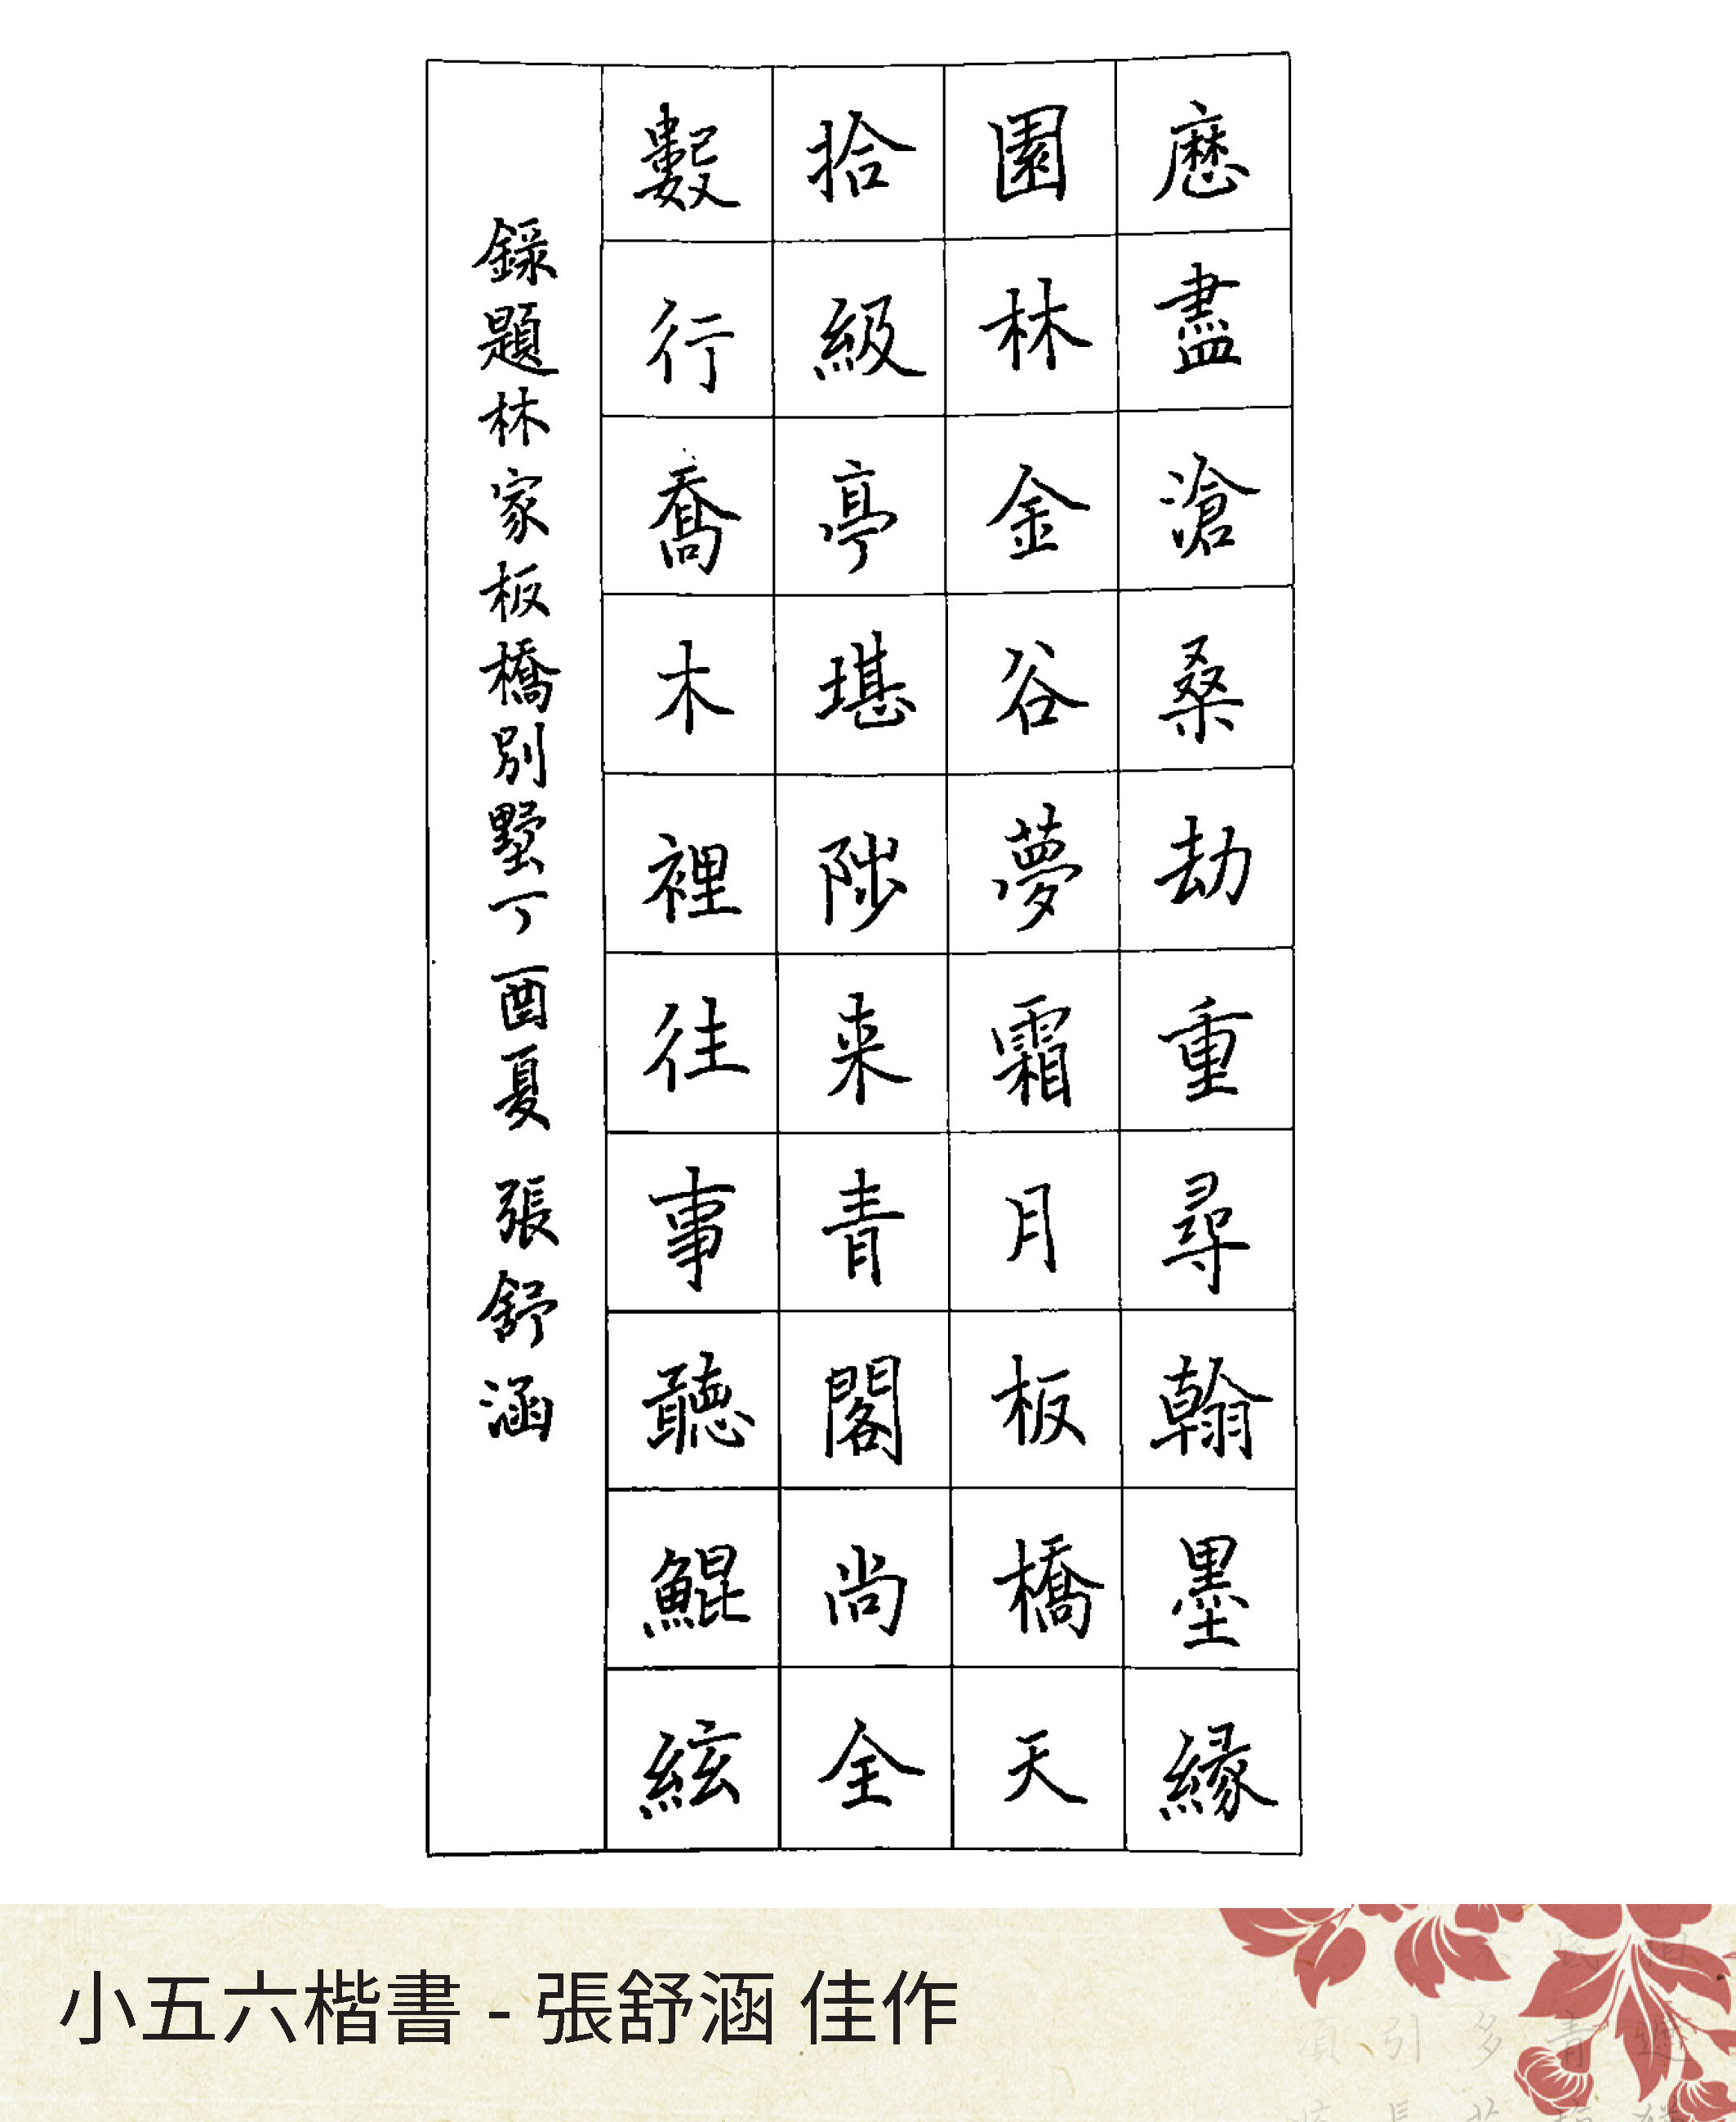 歷盡滄桑劫重尋翰墨緣
園林金谷夢霜月板橋天
拾級亭堪陟来青閣尚全
數行喬木裡往事聽鯤絃
錄題林家板橋別墅丁酉夏 張舒涵
小五六楷書 - 張舒涵 佳作